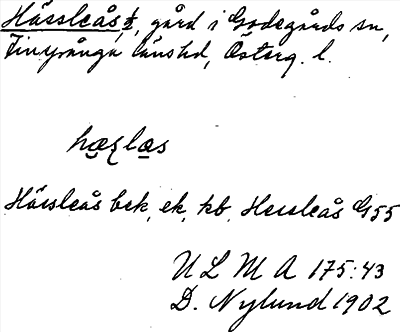 Hässleås ½, gård i Godegårds sn,
Finspånga länshd, Österg. l.
hæʂlas
Hässleås bek, ek, kb, Hessleås G55
ULMA 175:43
D. Nylund 1902